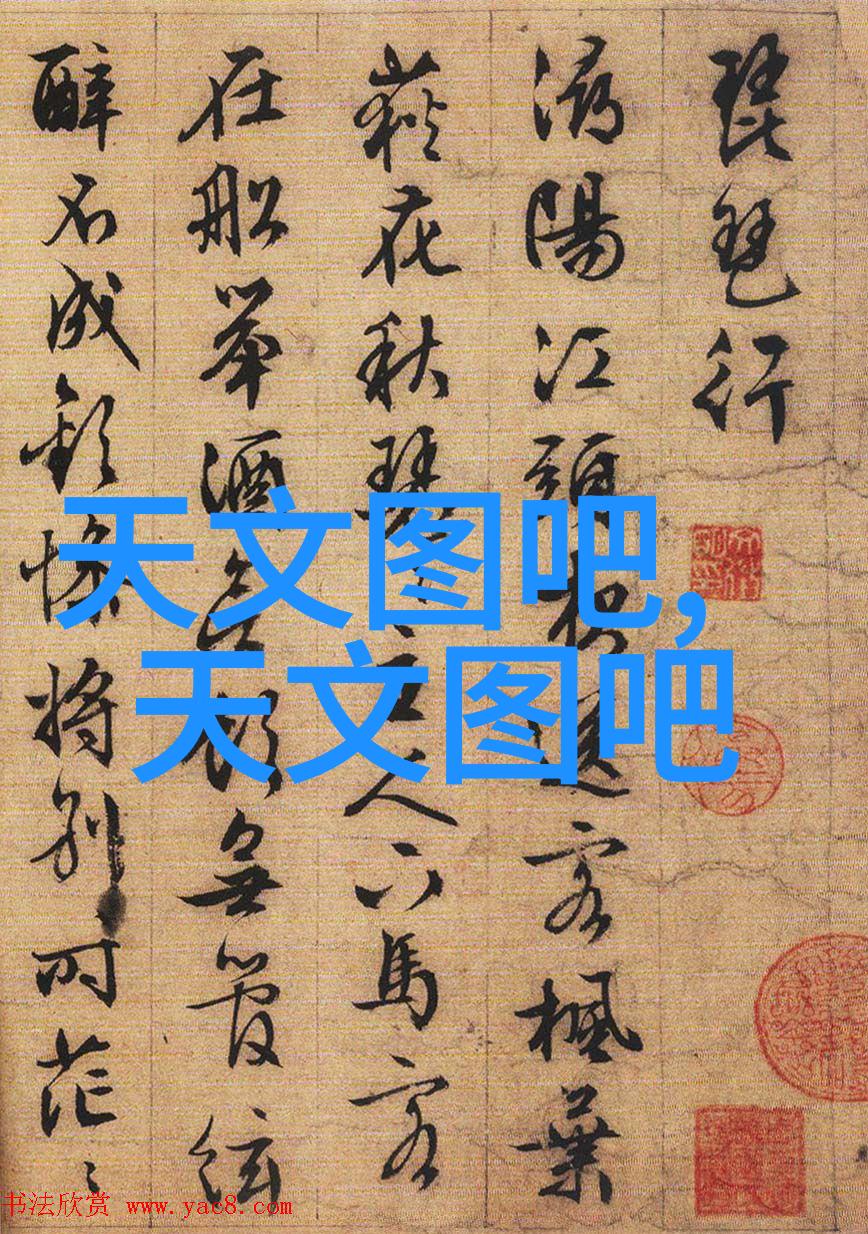 琵琶行
潯陽江頭夜送客楓葉
荻花秋瑟〻主人下馬客
在船舉酒欲飲無管絃
醉不成歡慘將別時茫〻
天文图吧,
天文图吧
书法欣赏 www.yac8.com